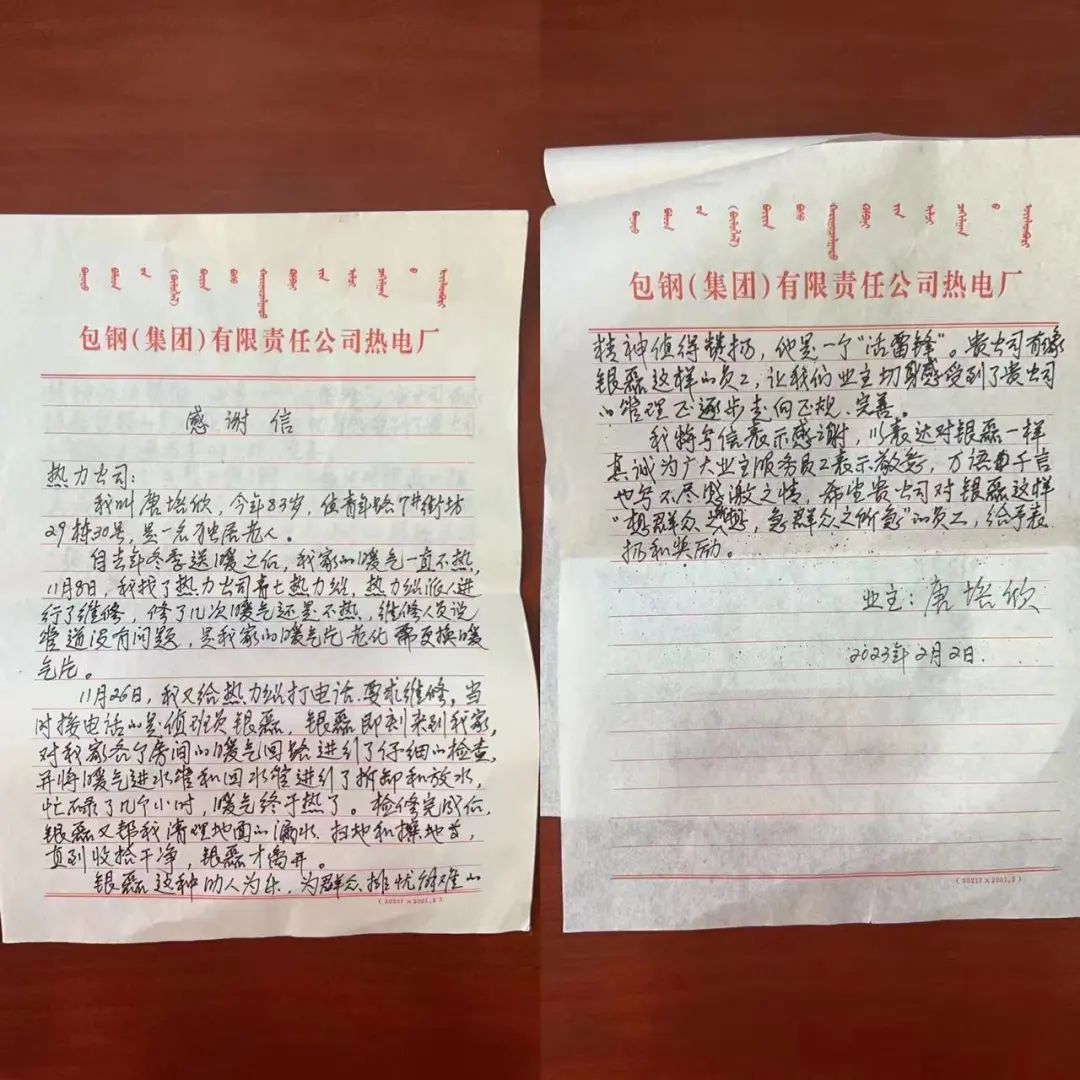 包钢(集团)有限责任公司热电厂
感谢信
热力公司:
我叫唐培欣,今年83岁,住青年路7#街坊
29栋30号,是一名独居老人。
自去年冬季送暖之后,我家的暖气一直不热,
11月8日,我找了热力公司青七热力站,热力站派人进
行了维修,修了几次暖气还是不热,维修人员说
管道没有问题,是我家的暖气片老化需更换暖
气片。
11月26日,我又给热力站打电话要求维修,当
时接电话的是值班员银磊,银磊即刻来到我家,
对我家各个房间的暖气回路进行了仔细的检查,
并将暖气进水管和回水管进行了拆卸和放水,
忙碌了几个小时,暖气终于热了。检修完成后,
银磊又帮我清理地面的漏水、扫地和擦地等,
直到收拾干净,银磊才离开。
银磊这种助人为乐,为群众排忧解难的
(30217×2001.5)
包钢(集团)有限责任公司热电厂
精神值得赞扬,他是一个“活雷锋”。贵公司有像
银磊这样的员工,让我们业主切身感受到了贵公司
的管理正逐步走向正规、完善。
我特写信表示感谢,以表达对银磊一样
真诚为广大业主服务员工表示敬意,万语千言
也写不尽感激之情,希望贵公司对银磊这样
“想群众所想,急群众之所急”的员工,给予表
扬和奖励。
业主:唐培欣
2023年2月2日.
(30217×2001.5)